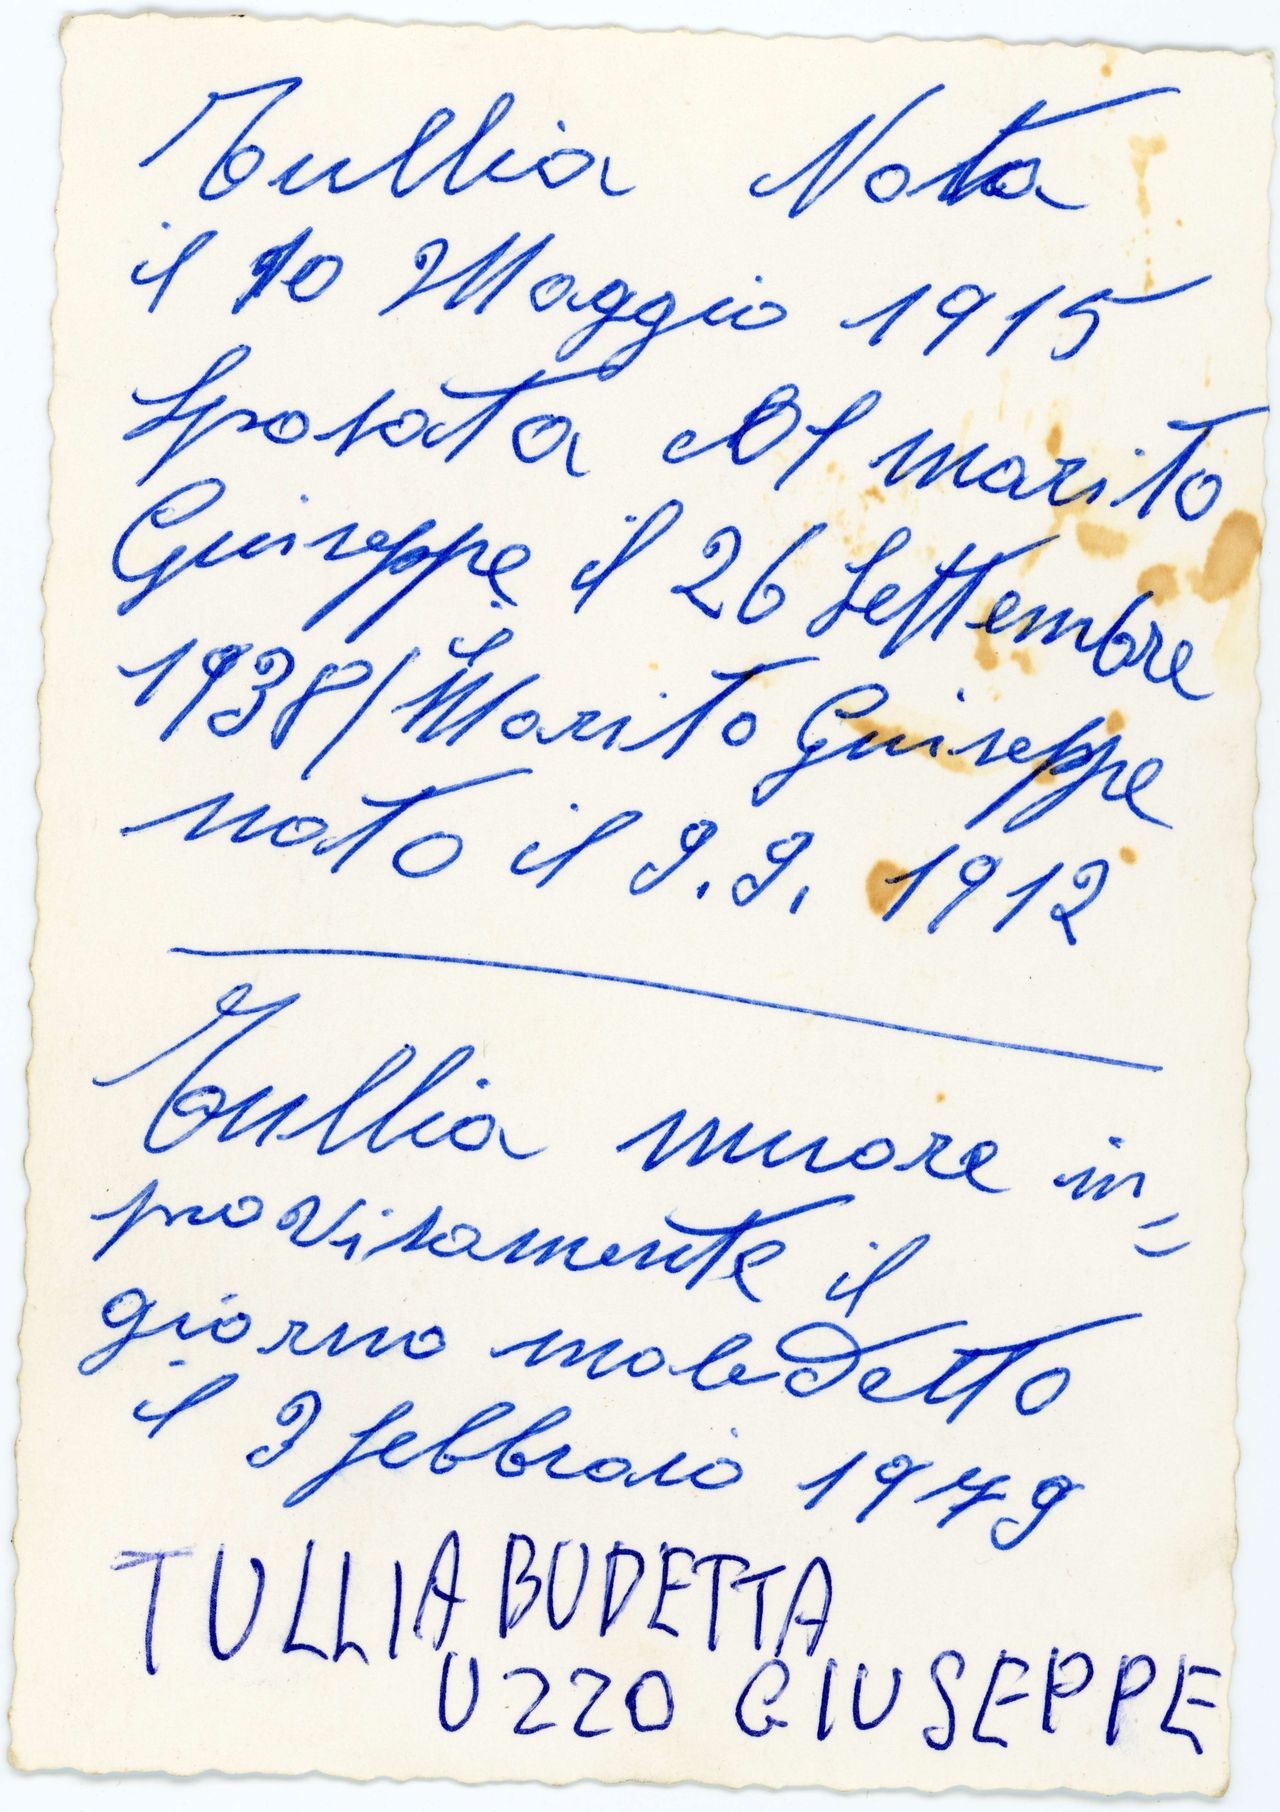 Tullia Nata
il 10 Maggio 1915
Sposata al marito
Giuseppe il 26 Settembre
1938/ il Marito Giuseppe
nato il 9.9. 1912
Tullia muore in=
provisamente il
giorno maledetto
il 3 febbraio 1979
TULLIA BUDETTA
UZZO GIUSEPPE